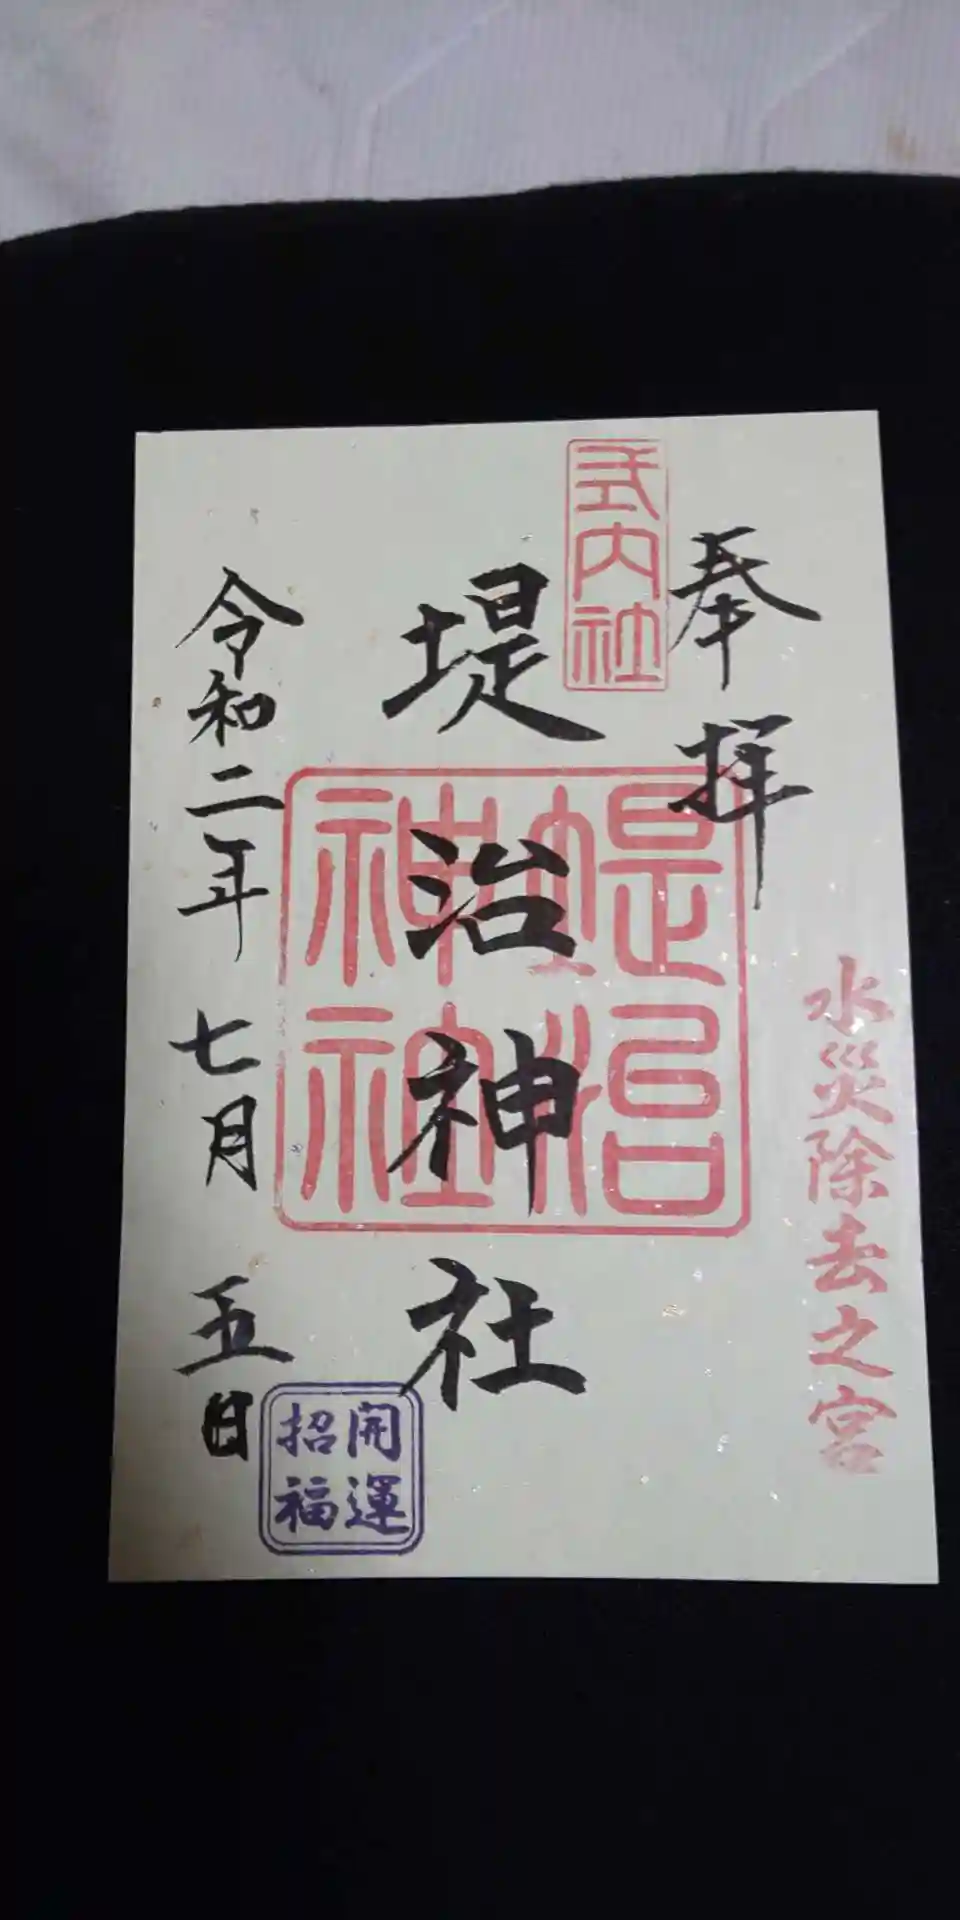 奉拝
水災除去之宮
式内社
堤治神社
堤治
神社
令和二年七月五日
開運
招福